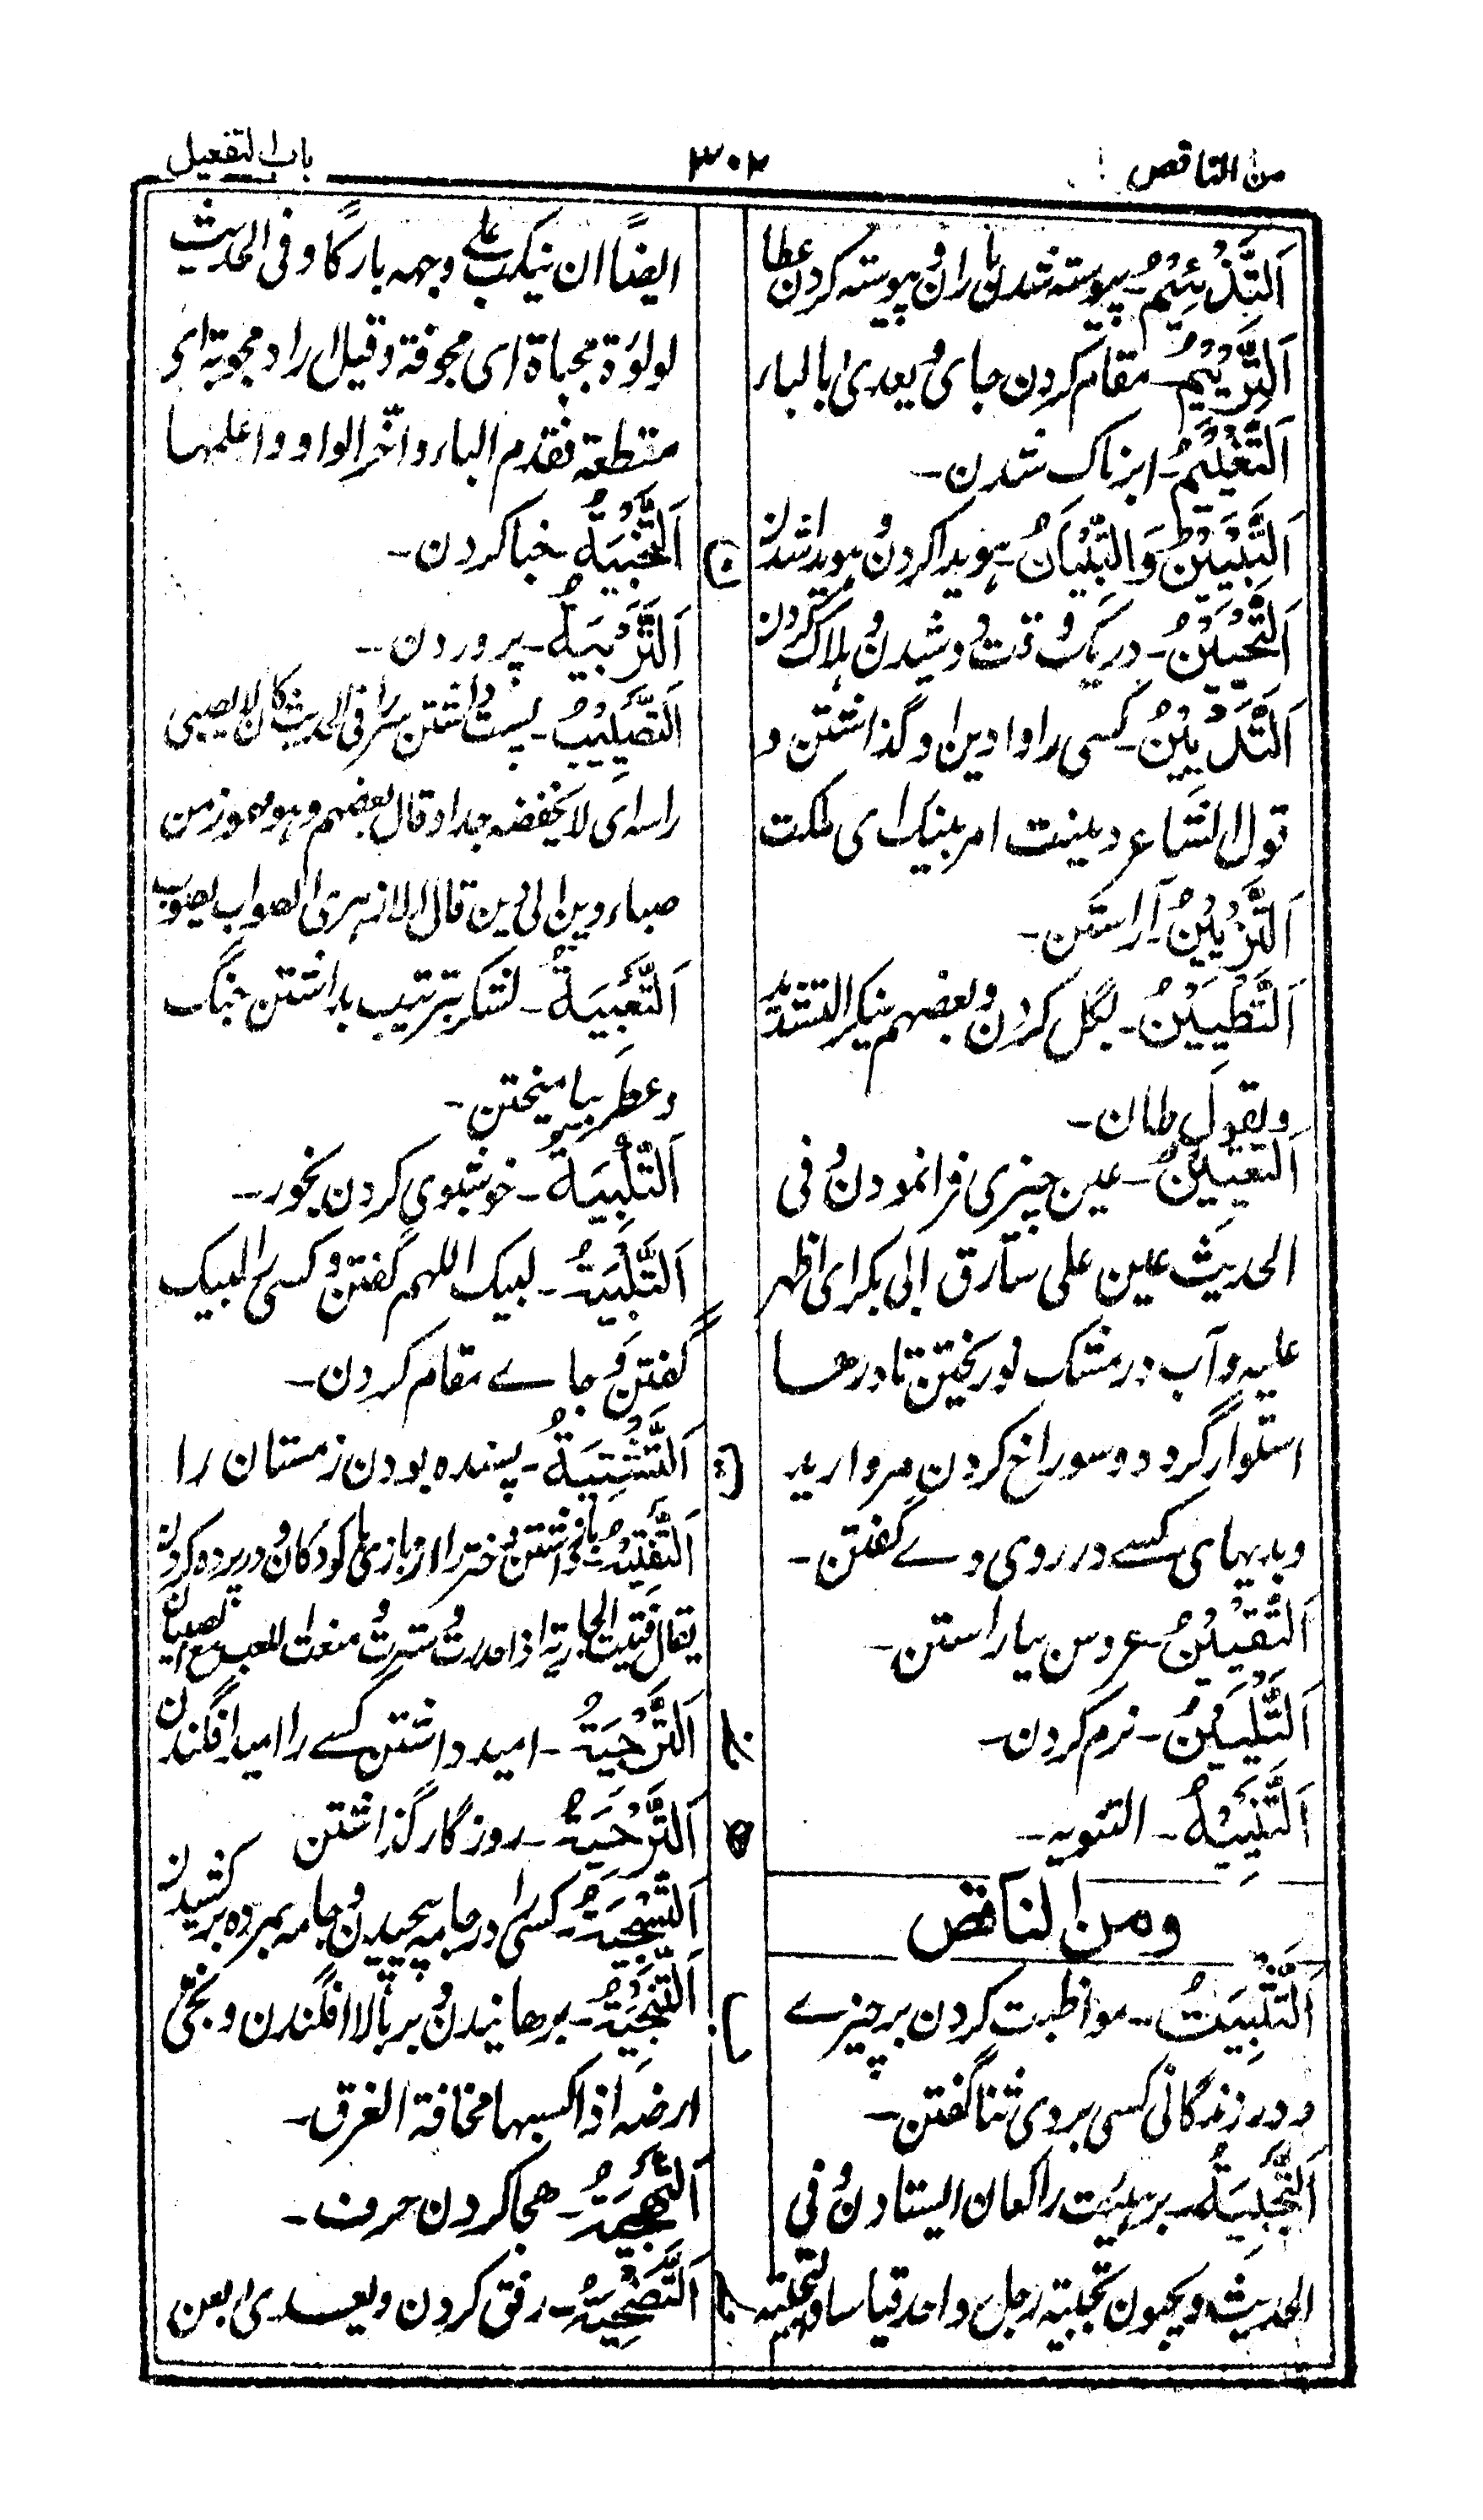 من الناقص
۳۰۲
باب التفعیل
اَلتَّدْئِیْمُ۔ پیوسته شدن باران و پیوسته کردن عطا
اَلتَّرْیِیْمُ۔ مقام کردن جای و یعدی بالبار
اَلتَّغْیِیْمُ۔ ابرناک شدن۔
اَلتَّبْیِیْنُ وَالتِّبْیَانُ۔ هویدا کردن و هویدا شدن
اَلتَّحْیِیْنُ۔ در یک وقت دوشیدن و هلاک کردن
اَلتَّدْیِیْنُ۔ کسی را وا دین او گذاشتن و
قول الشاعر دینت امر بنیک ای ملکت
اَلتَّزْیِیْنُ آراستن۔
اَلتَّطْیِیْنُ۔ بگل کردن و بعضهم ینکر التشدید
ویقول طان۔
اَلتَّعْیِیْنُ۔ عین چیزی فرا نمودن و فی
الحدیث عین علی سارق ابی بکر ای اظهر
علیه و آب در مشک نو ریختن تا درهسا
استوار گردد و سوراخ کردن مروارید
وبدیهای کسے در روی وے گفتن۔
اَلتَّقْیِیْنُ۔ عروس بیاراستن۔
اَلتَّلْیِیْنُ۔ نرم کردن۔
اَلتَّتْیِیْهُ۔ التتویه۔
ومن الناقص
اَلتَّثْبِیَتُ۔ مواظبت کردن بر چیزے
و در زندگانی کسی بر وی ثنا گفتن۔
اَلتَّجْبِیَةُ۔ بر هیئت راکعان ایستادن و فی
الحدیث ویجبون تجبیة رجل واحد قیاسا والتجبیة
ایضًا ان ینکب علے وجهه بارکًا وفی الحدیث
لولوٴة مجباة ای مجوفة وقیل اراد مجوبة ای
مقطعة فقدم البار واخر الواو واعلمها
اَلتَّخْبِیَةُ۔ خبا کردن۔
اَلتَّرْبِیَةُ۔ پروردن۔
اَلتَّصْبِیَتُ۔ پست داشتن سر و فی الحدیث کان لا یصبی
راسه ای لا یخفضه جدا و قال بعضهم و هو مهموز من
صباء دین الی دین قال الازهری الصواب یصوب
اَلتَّعْبِیَةُ۔ لشکر بترتیب بداشتن جنگ
وعطر بیامیختن۔
اَلتَّلْبِیَةُ۔ خوشبوی کردن بخور۔
اَلتَّلْبِیَةُ۔ لبیک اللهم گفتن و کسی را لبیک
گفتن و جاے مقام کردن۔
اَلتَّشْتِیَةُ۔ پسنده بودن زمستان را
اَلتَّفْتِیَةُ۔ باز داشتن دختر را از بازی با کودکان و در پرده کردن
یقال فتیت الجاریة اذا خدرت و سترت و منعت اللعب مع الصبیان
اَلتَّرْجِیَةُ۔ امید داشتن کسے را امید افگندن
اَلتَّزْجِیَةُ۔ روزگار گذاشتن
اَلتَّسْجِیَةُ۔ کسی را در جامه پیچیدن و جامه بمرده بر کشیدن
اَلتَّنْجِیَةُ۔ برهانیدن و بر بالا افگندن و نجی
ارضه اذا کسبها مخافة الغرق۔
اَلتَّهْجِیَةُ۔ هجا کردن حرف۔
اَلتَّضْحِیَةُ۔ رفق کردن ویعدی بعن